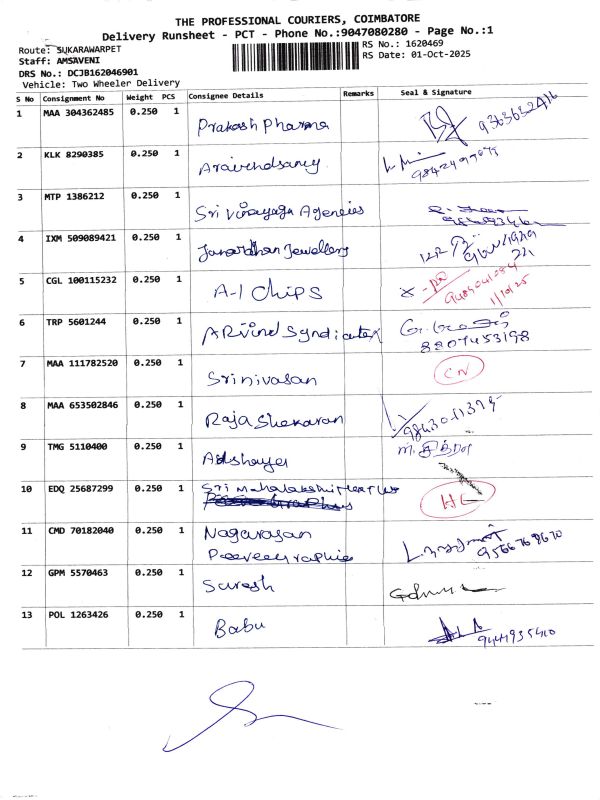 THE PROFESSIONAL COURIERS, COIMBATORE
Delivery Runsheet - PCT - Phone No.:9047080280 - Page No.:1
Route: SUKARAWARPET
RS No.: 1620469
Staff: AMSAVENI
RS Date: 01-Oct-2025
DRS No.: DCJB162046901
Vehicle: Two Wheeler Delivery
S No Consignment No Weight PCS Consignee Details Remarks Seal & Signature
1 MAA 304362485 0.250 1 Prakash Pharma 9363632416
2 KLK 8290385 0.250 1
3 MTP 1386212 0.250 1 Sri Vinayaga Agencies
4 IXM 509089421 0.250 1 Janardhan Jewellery
5 CGL 100115232 0.250 1 A-1 Chips 1/10/25
6 TRP 5601244 0.250 1 ARvind Syndicate 8807453198
7 MAA 111782520 0.250 1 Srinivasan CN
8 MAA 653502846 0.250 1 Raja Shekaran
9 TMG 5110400 0.250 1
10 EDQ 25687299 0.250 1 Sri Mahalakshmi
11 CMD 70182040 0.250 1 Nagarasan
9566768670
12 GPM 5570463 0.250 1 Suresh
13 POL 1263426 0.250 1 Babu